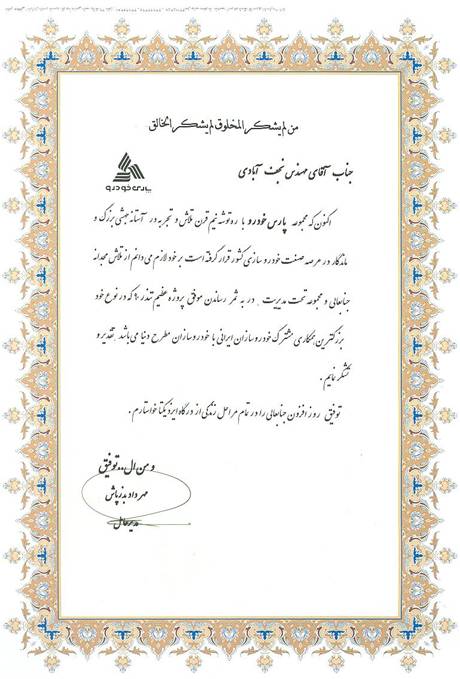 من لم یشکر المخلوق لم یشکر الخالق
پارس خودرو
جناب آقای مهندس نجف آبادی
اکنون که مجموعه پارس خودرو با ره توشه نیم قرن تلاش و تجربه در آستانه جهشی بزرگ و
ماندگار در عرصه صنعت خودروسازی کشور قرار گرفته است بر خود لازم می دانم از تلاش مجدانه
جنابعالی و مجموعه تحت مدیریت در به ثمر رساندن موفق پروژه عظیم تندر ۹۰ که در نوع خود
بزرگترین همکاری مشترک خودروسازان ایرانی با خودروسازان مطرح دنیا می باشد تقدیر و
تشکر نمایم .
توفیق روز افزون جنابعالی را در تمام مراحل زندگی از درگاه ایزد یکتا خواستارم .
و من ال.. توفیق
مهرداد بذرپاش
مدیرعامل